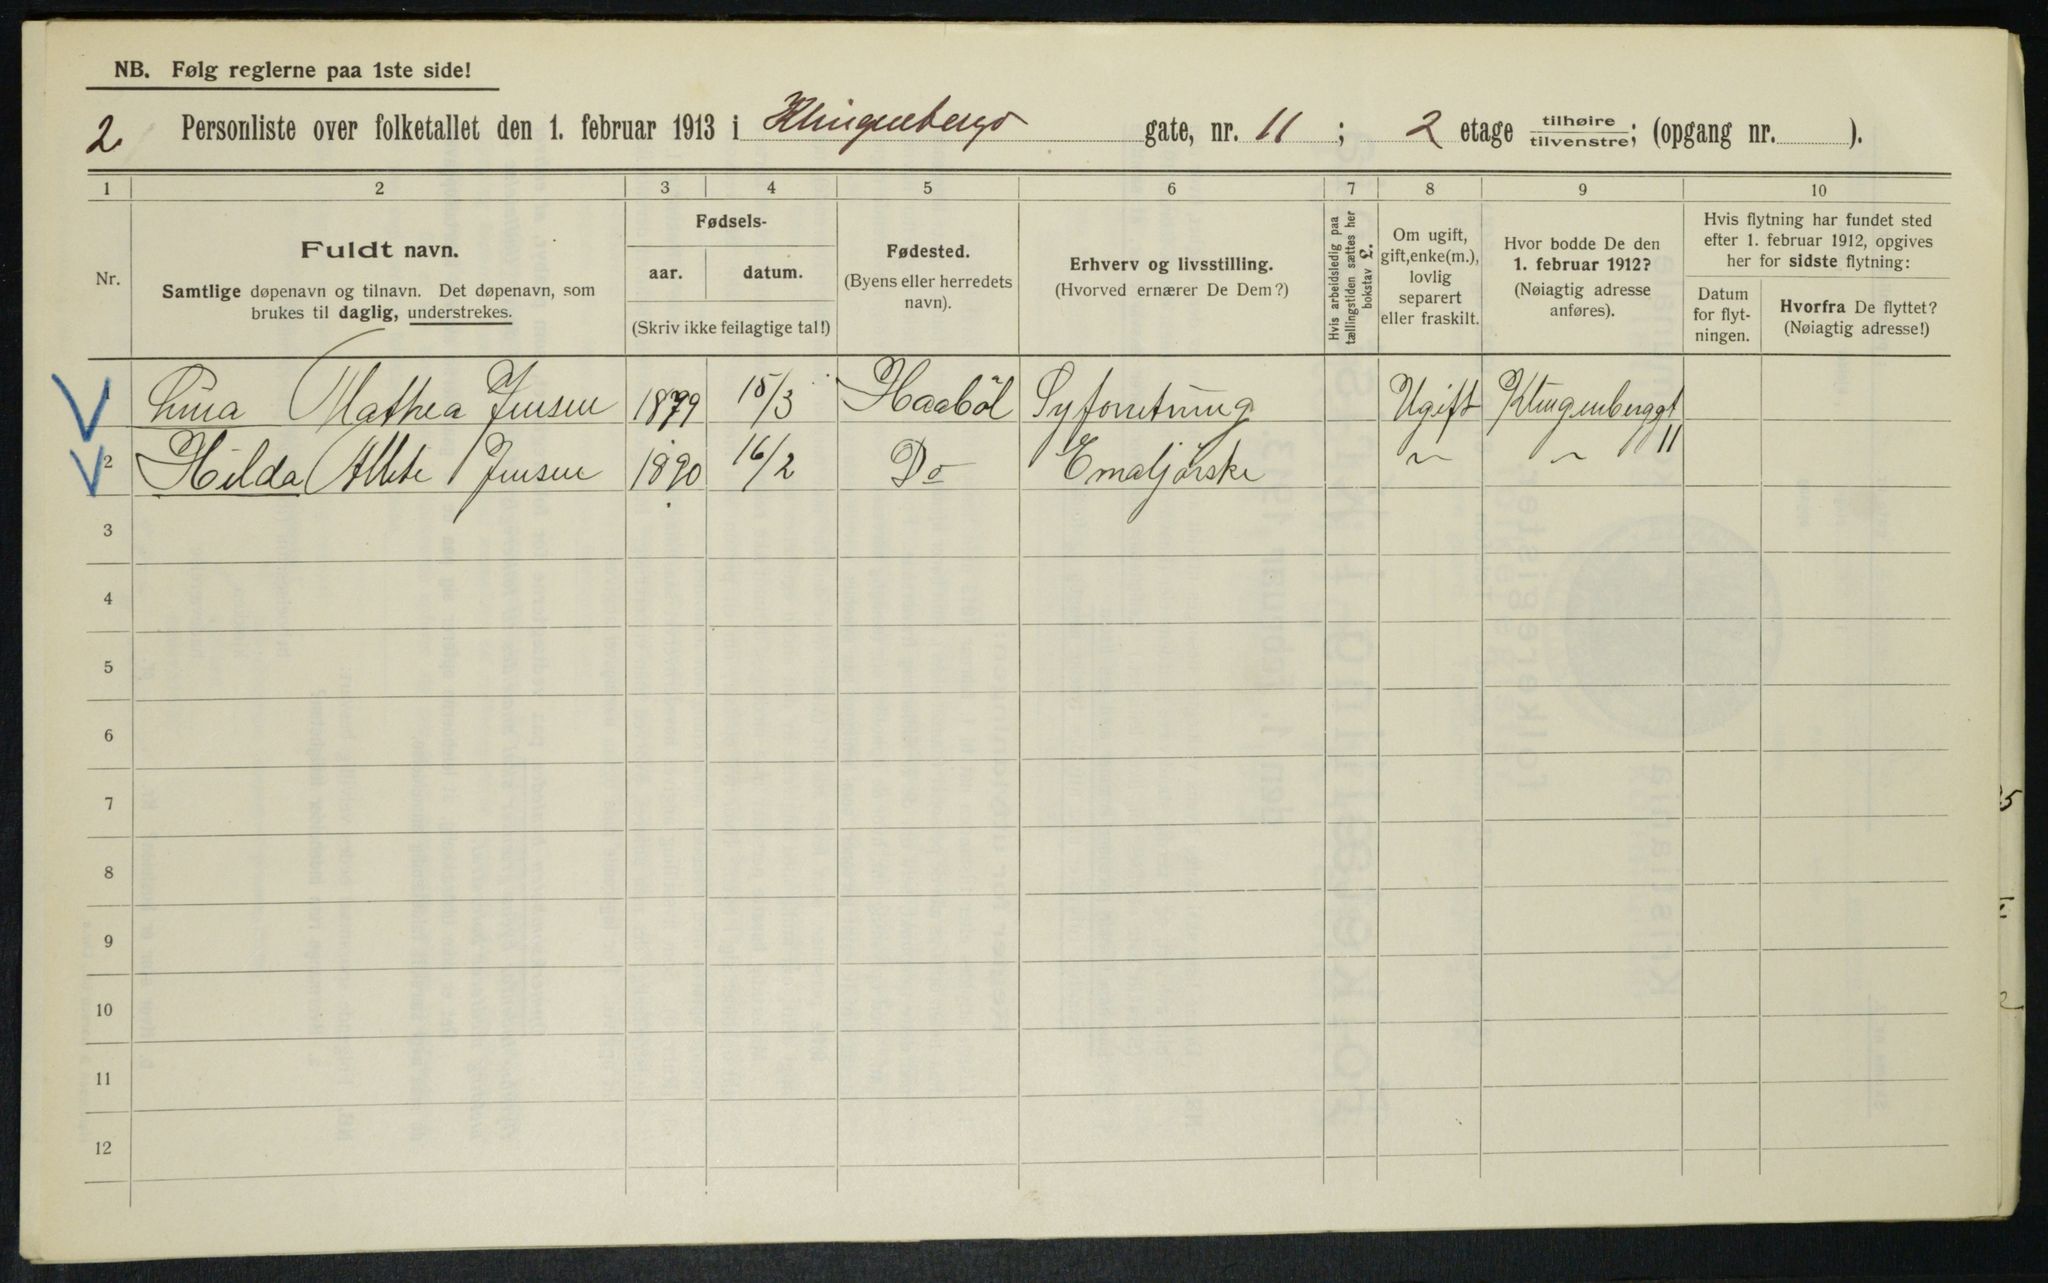 NB. Følg reglerne paa 1ste side!
2 Personliste over folketallet den 1. februar 1913 i Klingenbergs gate, nr. 11 ; 2 etage tilhøire/tilvenstre; (opgang nr. ).
1 2 3 4 5 6 7 8 9 10
Nr.
Fuldt navn.
Samtlige døpenavn og tilnavn. Det døpenavn, som
brukes til daglig, understrekes.
Fødsels-
aar. datum.
(Skriv ikke feilagtige tal!)
Fødested.
(Byens eller herredets
navn).
Erhverv og livsstilling.
(Hvorved ernærer De Dem?)
Hvis arbeidsledig paa
tællingstiden sættes her
bokstav £.
Om ugift,
gift, enke(m.),
lovlig
separert
eller fraskilt.
Hvor bodde De den
1. februar 1912?
(Nøiagtig adresse
anføres).
Hvis flytning har fundet sted
efter 1. februar 1912, opgives
her for sidste flytning:
Datum
for flyt-
ningen.
Hvorfra De flyttet?
(Nøiagtig adresse!)
1 Lina Mathea Jensen 1879 15/3 Haaböl Syforretning Ugift Klingenberggt 11
2 Hilda Jensen 1890 16/2 Do Emaljørske " "
3
4
5
6
7
8
9
10
11
12